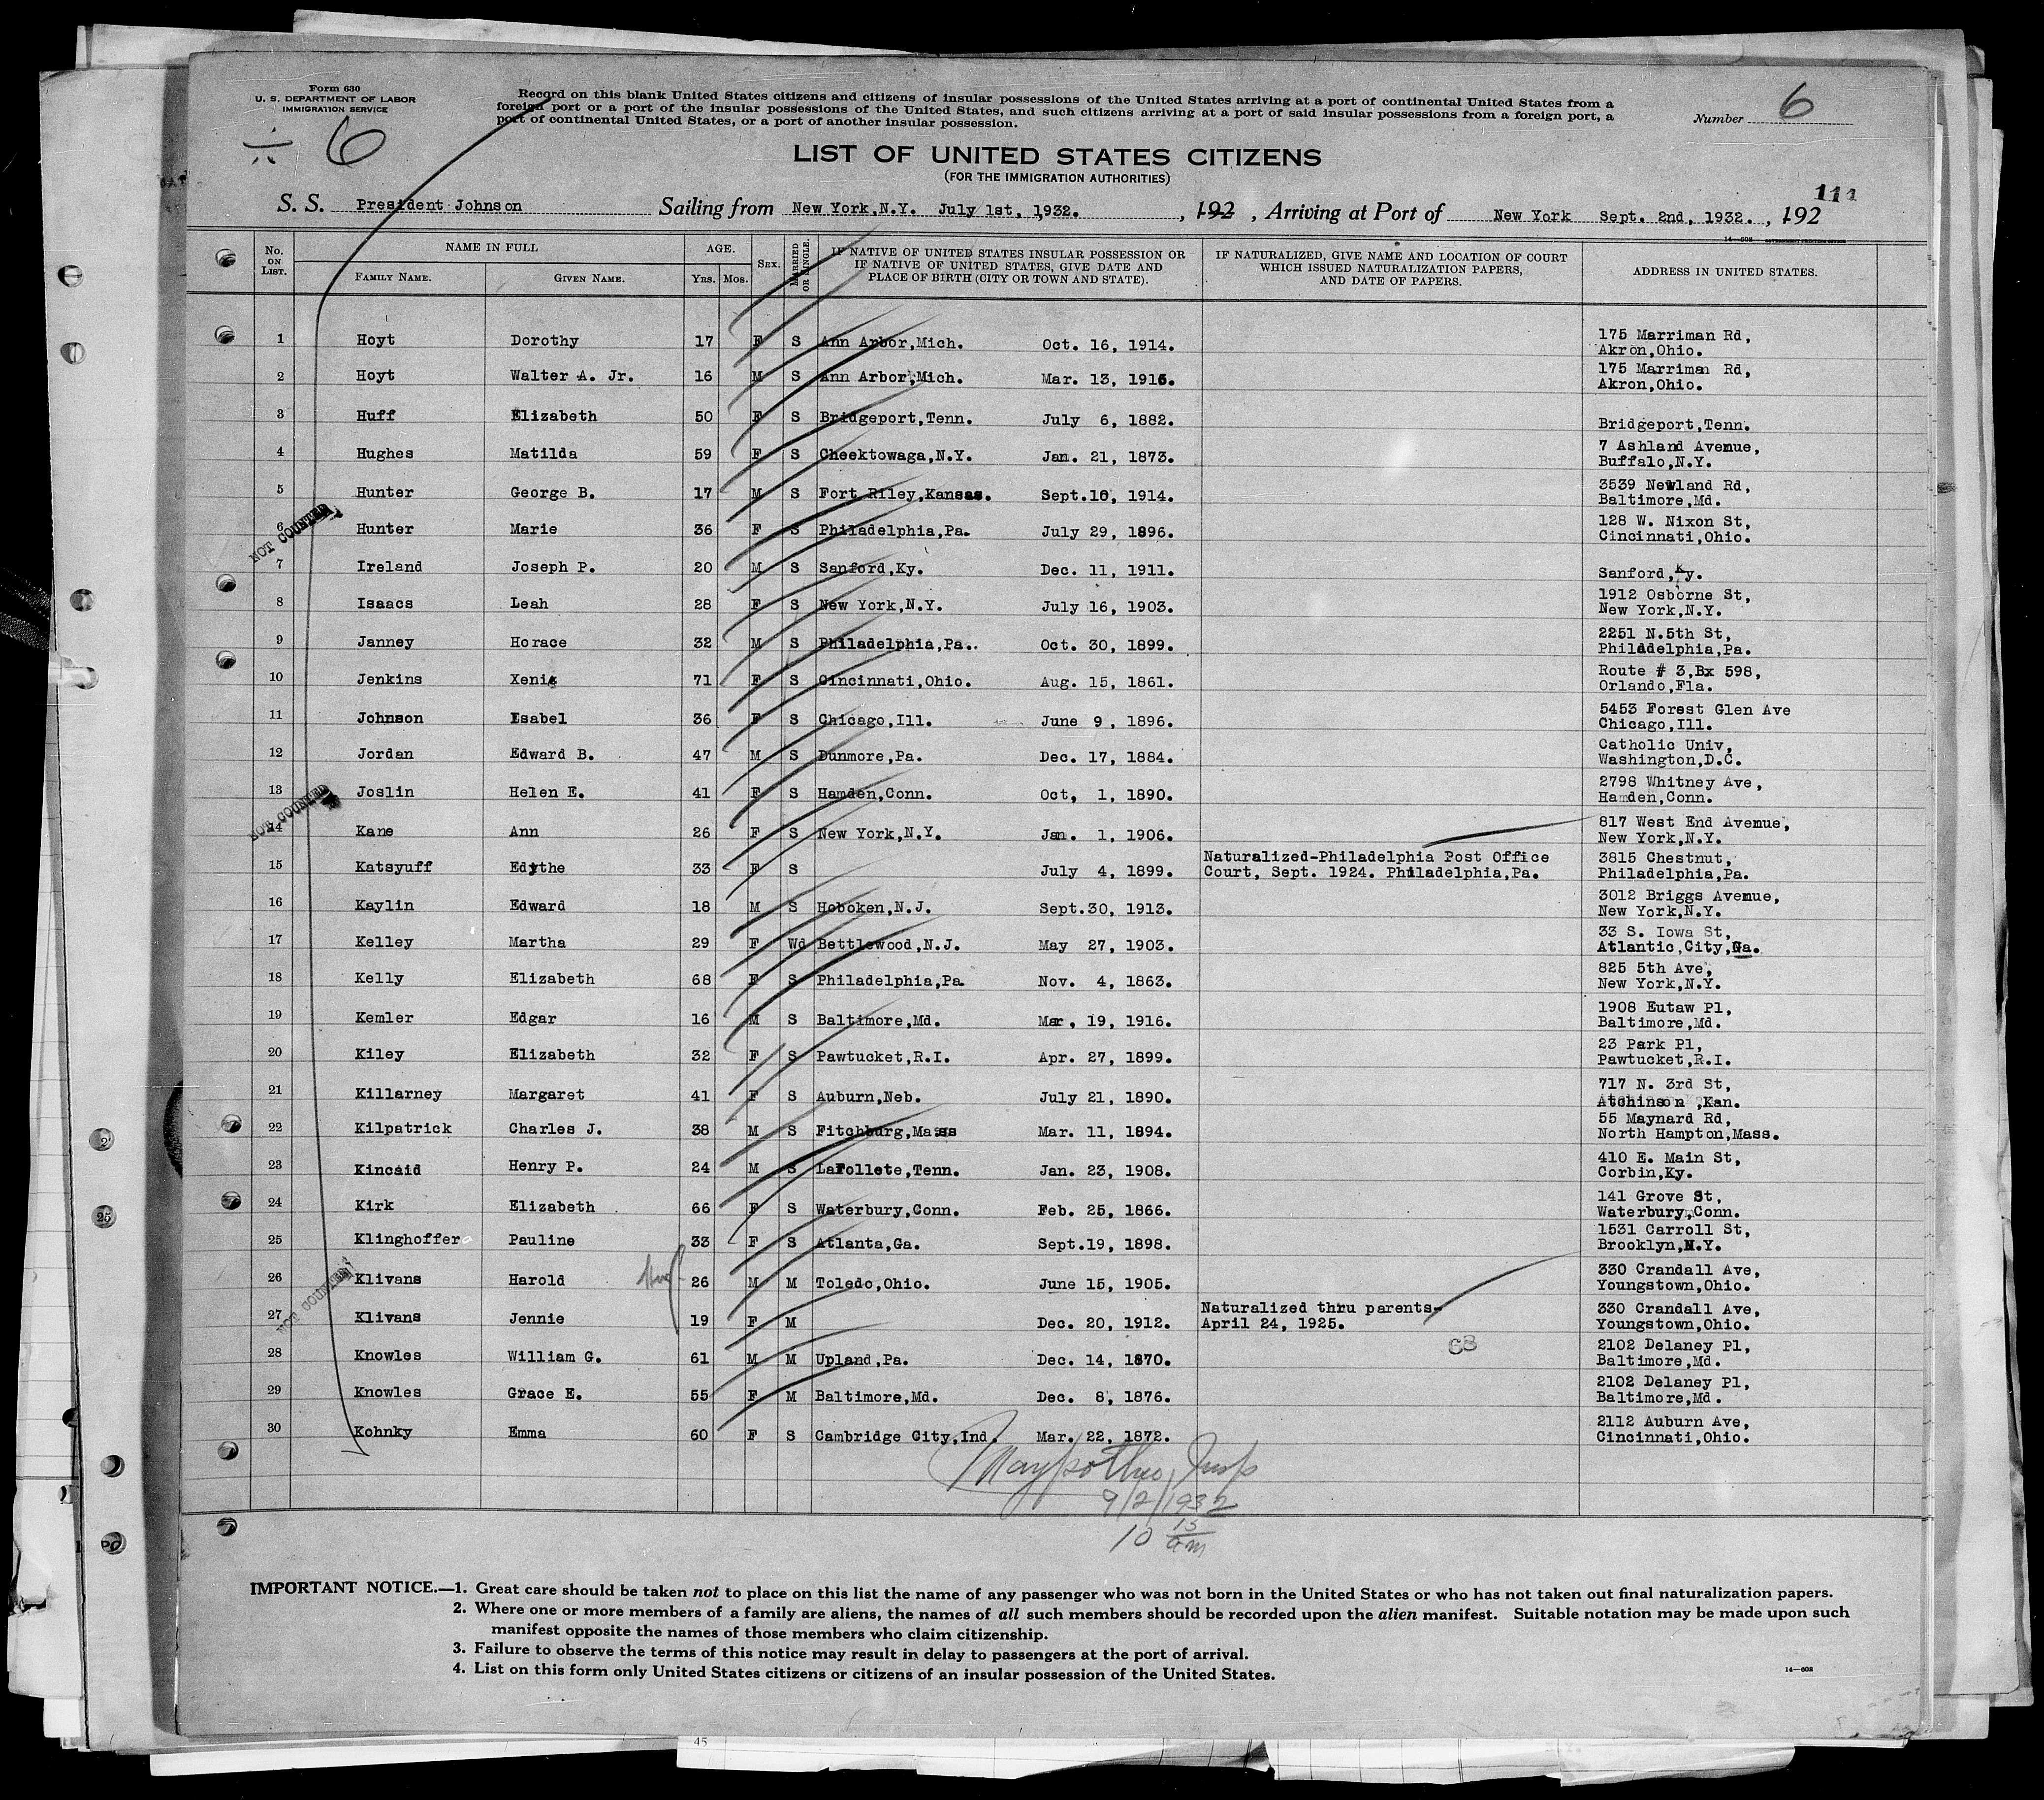 Form 630
U. S. DEPARTMENT OF LABOR
IMMIGRATION SERVICE
6
Record on this blank United States citizens and citizens of insular possessions of the United States arriving at a port of continental United States from a
foreign port or a port of the insular possessions of the United States, and such citizens arriving at a port of said insular possessions from a foreign port, a
port of continental United States, or a port of another insular possession.
Number 6
LIST OF UNITED STATES CITIZENS
(FOR THE IMMIGRATION AUTHORITIES)
111
S. S. President Johnson Sailing from New York, N.Y. July 1st, 1932. , 192 , Arriving at Port of New York Sept. 2nd, 1932. , 192
14—608 GOVERNMENT PRINTING OFFICE
No. ON LIST. NAME IN FULL AGE. SEX. MARRIED OR SINGLE. IF NATIVE OF UNITED STATES INSULAR POSSESSION OR IF NATIVE OF UNITED STATES, GIVE DATE AND PLACE OF BIRTH (CITY OR TOWN AND STATE). IF NATURALIZED, GIVE NAME AND LOCATION OF COURT WHICH ISSUED NATURALIZATION PAPERS, AND DATE OF PAPERS. ADDRESS IN UNITED STATES.
FAMILY NAME. GIVEN NAME. YRS. MOS.
1 Hoyt Dorothy 17 F S Ann Arbor,Mich. Oct. 16, 1914. 175 Marriman Rd,
Akron,Ohio.
2 Hoyt Walter A. Jr. 16 M S Ann Arbor,Mich. Mar. 13, 1916. 175 Marriman Rd,
Akron,Ohio.
3 Huff Elizabeth 50 F S Bridgeport,Tenn. July 6, 1882. Bridgeport,Tenn.
4 Hughes Matilda 59 F S Cheektowaga,N.Y. Jan. 21, 1873. 7 Ashland Avenue,
Buffalo,N.Y.
5 Hunter George B. 17 M S Fort Riley,Kansas. Sept.10, 1914. 3539 Newland Rd,
Baltimore,Md.
NOT COUNTED
6 Hunter Marie 36 F S Philadelphia,Pa. July 29, 1896. 128 W. Nixon St,
Cincinnati,Ohio.
7 Ireland Joseph P. 20 M S Sanford,Ky. Dec. 11, 1911. Sanford,Ky.
8 Isaacs Leah 28 F S New York,N.Y. July 16, 1903. 1912 Osborne St,
New York,N.Y.
9 Janney Horace 32 M S Philadelphia,Pa.. Oct. 30, 1899. 2251 N.5th St,
Philddelphia,Pa.
10 Jenkins Xenia 71 F S Cincinnati,Ohio. Aug. 15, 1861. Route # 3,Bx 598,
Orlando,Fla.
11 Johnson Isabel 36 F S Chicago,Ill. June 9, 1896. 5453 Forest Glen Ave
Chicago,Ill.
12 Jordan Edward B. 47 M S Dunmore,Pa. Dec. 17, 1884. Catholic Univ,
Washington,D.C.
13 Joslin Helen E. 41 F S Hamden,Conn. Oct, 1, 1890. 2798 Whitney Ave,
Hamden,Conn.
NOT COUNTED
14 Kane Ann 26 F S New York,N.Y. Jan. 1, 1906. 817 West End Avenue,
New York,N.Y.
15 Katsyuff Edythe 33 F S July 4, 1899. Naturalized-Philadelphia Post Office 3815 Chestnut,
Court, Sept. 1924. Philadelphia,Pa. Philadelphia,Pa.
16 Kaylin Edward 18 M S Hoboken,N.J. Sept.30, 1913. 3012 Briggs Avenue,
New York,N.Y.
17 Kelley Martha 29 F Wd Bettlewood,N.J. May 27, 1903. 33 S. Iowa St,
Atlantic,City,Ga.
18 Kelly Elizabeth 68 F S Philadelphia,Pa. Nov. 4, 1863. 825 5th Ave,
New York,N.Y.
19 Kemler Edgar 16 M S Baltimore,Md. Mar, 19, 1916. 1908 Eutaw Pl,
Baltimore,Md.
20 Kiley Elizabeth 32 F S Pawtucket,R.I. Apr. 27, 1899. 23 Park Pl,
Pawtucket,R.I.
21 Killarney Margaret 41 F S Auburn,Neb. July 21, 1890. 717 N. 3rd St,
Atchinson ,Kan.
22 Kilpatrick Charles J. 38 M S Fitchburg,Mass Mar. 11, 1894. 55 Maynard Rd,
North Hampton,Mass.
23 Kincaid Henry P. 24 M S LaFollete,Tenn. Jan. 23, 1908. 410 E. Main St,
Corbin,Ky.
24 Kirk Elizabeth 66 F S Waterbury,Conn. Feb. 25, 1866. 141 Grove St,
Waterbury,Conn.
25 Klinghoffer Pauline 33 F S Atlanta,Ga. Sept.19, 1898. 1531 Carroll St,
Brooklyn,N.Y.
26 Klivans Harold 26 M M Toledo,Ohio. June 15, 1905. 330 Crandall Ave,
Youngstown,Ohio.
NOT COUNTED
27 Klivans Jennie 19 F M Dec. 20, 1912. Naturalized thru parents- 330 Crandall Ave,
April 24, 1925. Youngstown,Ohio.
68
28 Knowles William G. 61 M M Upland,Pa. Dec. 14, 1870. 2102 Delaney Pl,
Baltimore,Md.
29 Knowles Grace E. 55 F M Baltimore,Md. Dec. 8, 1876. 2102 Delaney Pl,
Baltimore,Md.
30 Kohnky Emma 60 F S Cambridge City,Ind. Mar. 22, 1872. 2112 Auburn Ave,
Cincinnati,Ohio.
9/2/1932
10 15 am
IMPORTANT NOTICE.—1. Great care should be taken not to place on this list the name of any passenger who was not born in the United States or who has not taken out final naturalization papers.
2. Where one or more members of a family are aliens, the names of all such members should be recorded upon the alien manifest. Suitable notation may be made upon such
manifest opposite the names of those members who claim citizenship.
3. Failure to observe the terms of this notice may result in delay to passengers at the port of arrival.
4. List on this form only United States citizens or citizens of an insular possession of the United States.
14—608
45